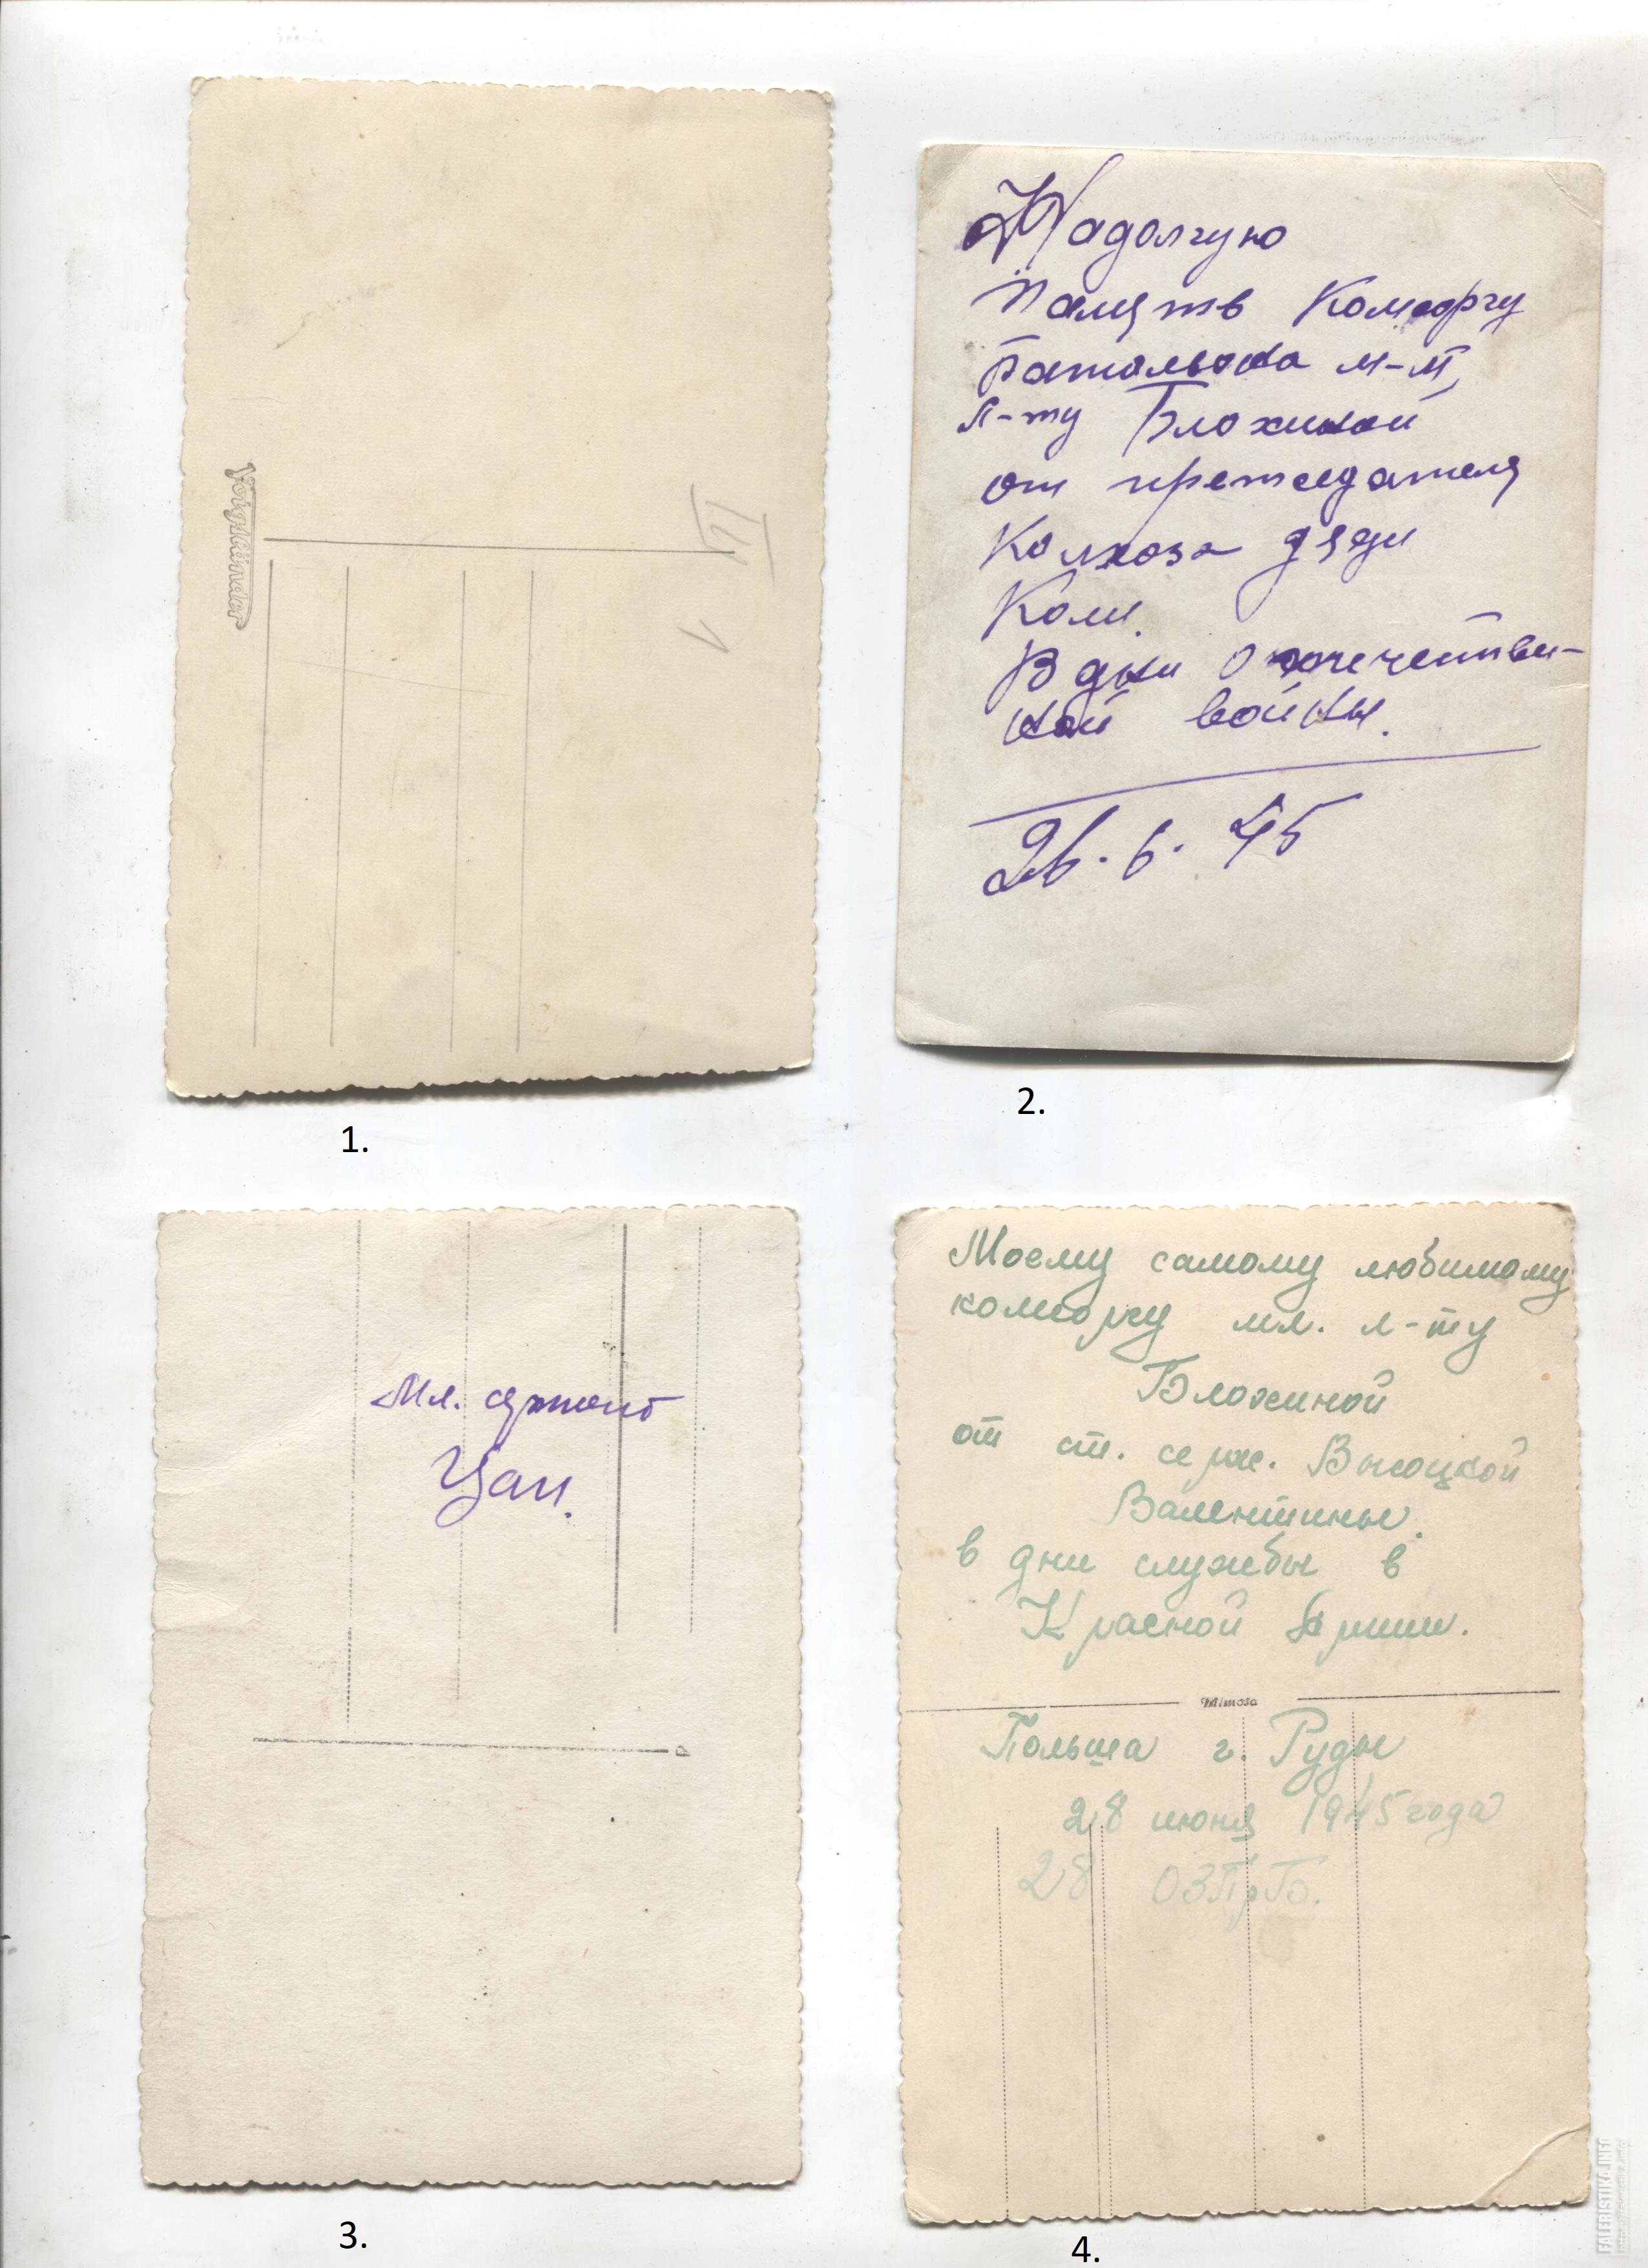 Voigtländer
IV
1
1.
На долгую
память Комсоргу
Батальона м-л,
л-ту Блохиной
от претседателя
Колхоза дяди
Коли.
В дни отечествен-
ной войны.
26. 6. 45
2.
Мл. сержант
Цап.
3.
Моему самому любимому
комсоргу мл. л-ту
Блохиной
от ст. серж. Высоцкой
Валентины.
в дни службы в
Красной Армии.
Mimosa
Польша г. Руды
28 июня 1945 года
28 ОЗПрБ.
4.
FALERISTIKA.INFO